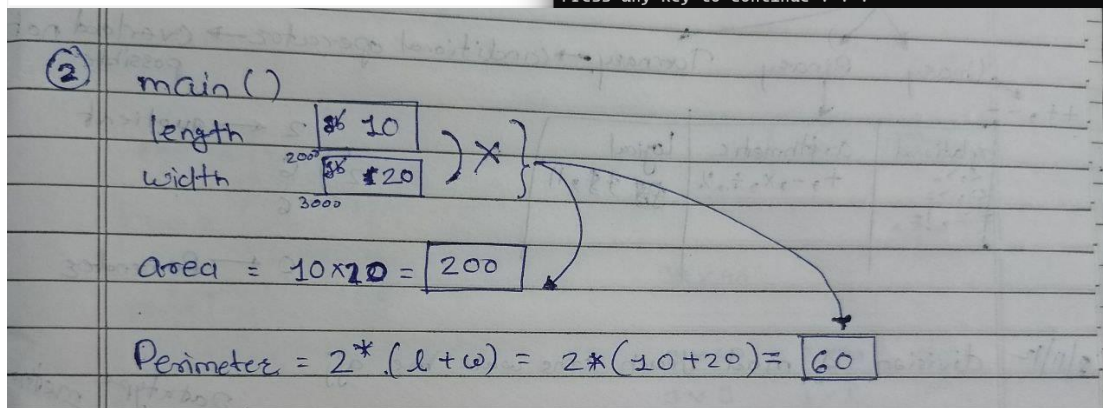 Press any key to continue . . .
② main()
length 10
2000
width 20
3000
area = 10×20 = 200
Perimeter = 2*(l+w) = 2*(10+20)= 60